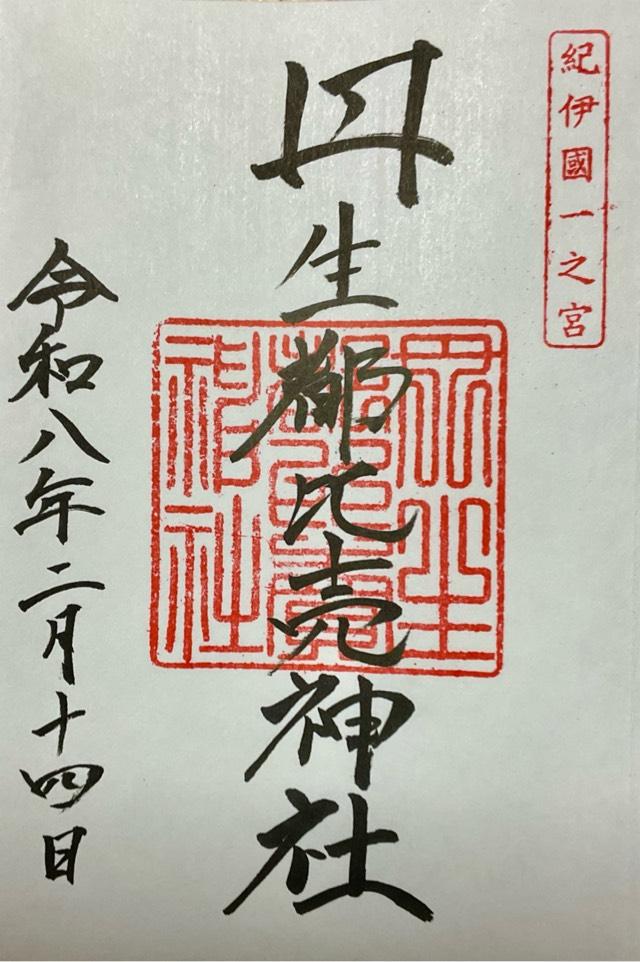 紀伊國一之宮
丹生都比売神社
丹生都比賣神社
令和八年二月十四日